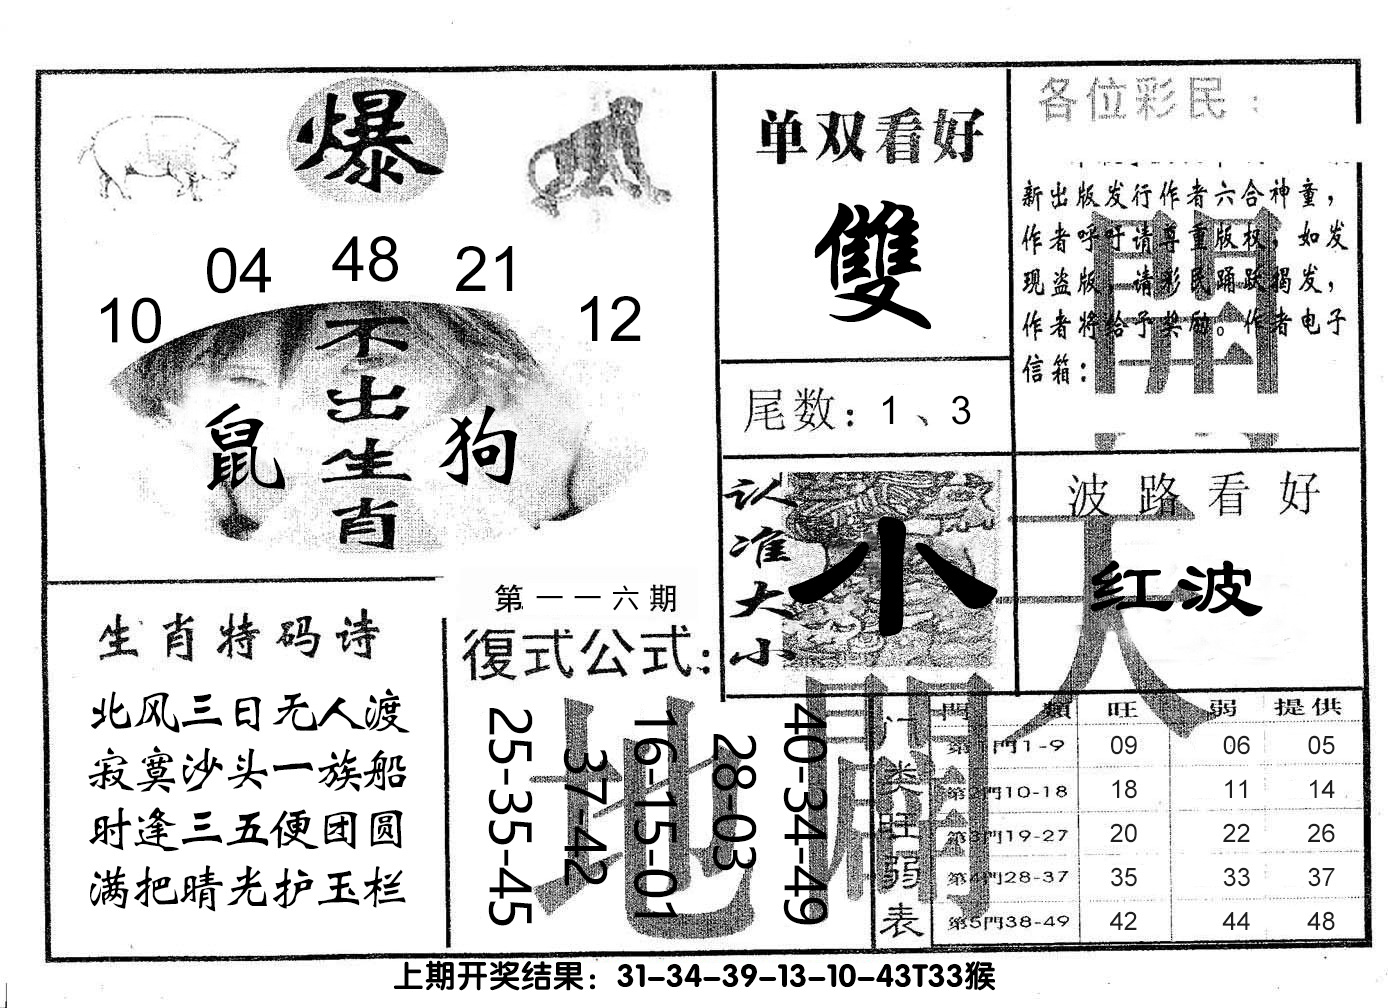 爆
10 04 48 21 12
不出生肖
鼠 狗
单双看好
雙
尾数：1、3
各位彩民：
新出版发行作者六合神童，
作者呼吁请尊重版权，如发
现盗版，请彩民踊跃揭发，
作者将给予奖励。作者电子
信箱：
認准大小
小
波路看好
红波
生肖特码诗
北风三日无人渡
寂寞沙头一族船
时逢三五便团圆
满把晴光护玉栏
第一一六期
復式公式：
25-35-45
37-42
16-15-01
28-03
40-34-49
天地開
門類 旺 弱 提供
门类旺弱表
第1門1-9 09 06 05
第2門10-18 18 11 14
第3門19-27 20 22 26
第4門28-37 35 33 37
第5門38-49 42 44 48
上期开奖结果：31-34-39-13-10-43T33猴